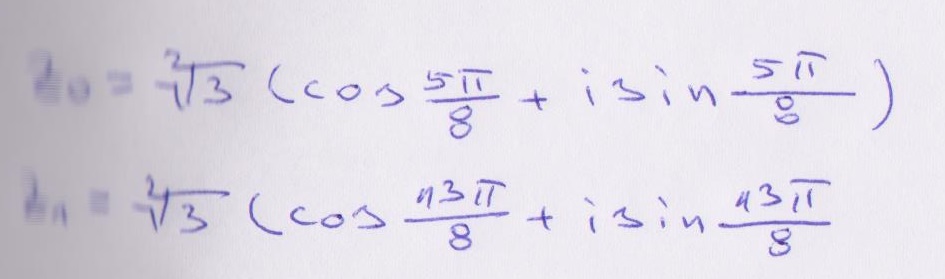 z₀ = ²√3 (cos 5π/8 + i sin 5π/8)
z₁ = ²√3 (cos 13π/8 + i sin 13π/8